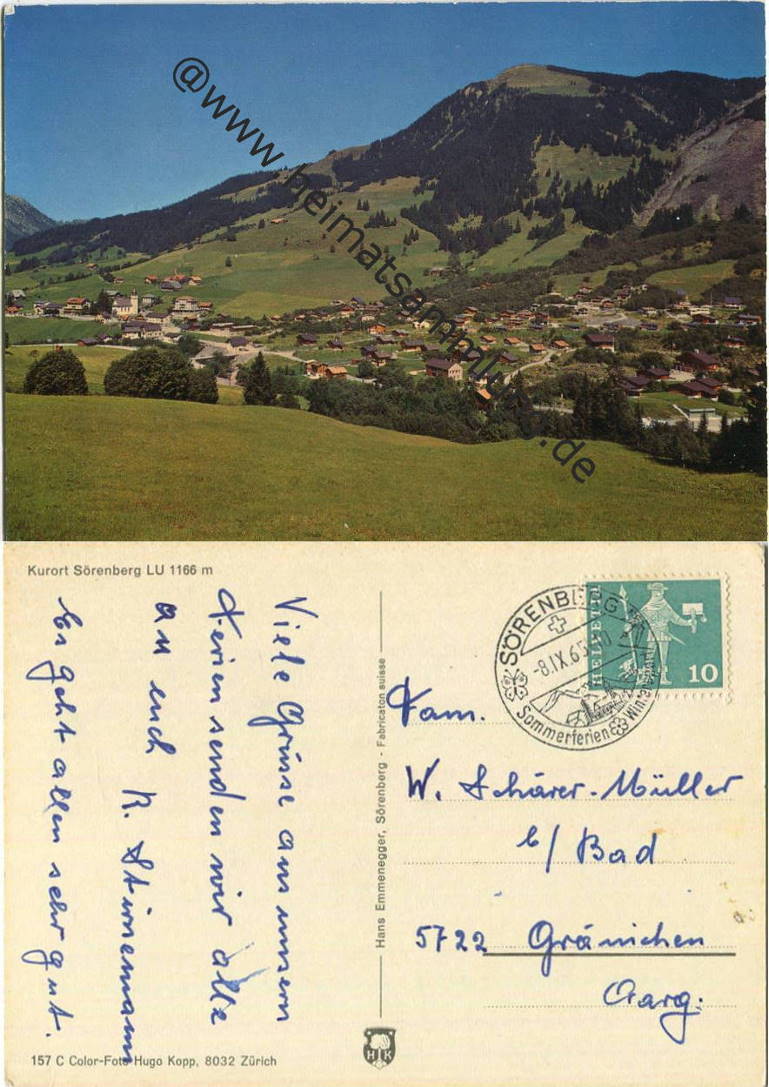 @www.heimatsammlung.de
Kurort Sörenberg LU 1166 m
Viele Grüsse aus unsern
Ferien senden wir alle
an euch R. Stirnemann
Es geht allen sehr gut.
Hans Emmenegger, Sörenberg - Fabrication suisse
SÖRENBERG
-8.IX.65
Sommerferien
HELVETIA
10
Fam.
W. Schärer-Müller
b/ Bad
5722 Gränichen
Aarg.
157 C Color-Foto Hugo Kopp, 8032 Zürich
H K